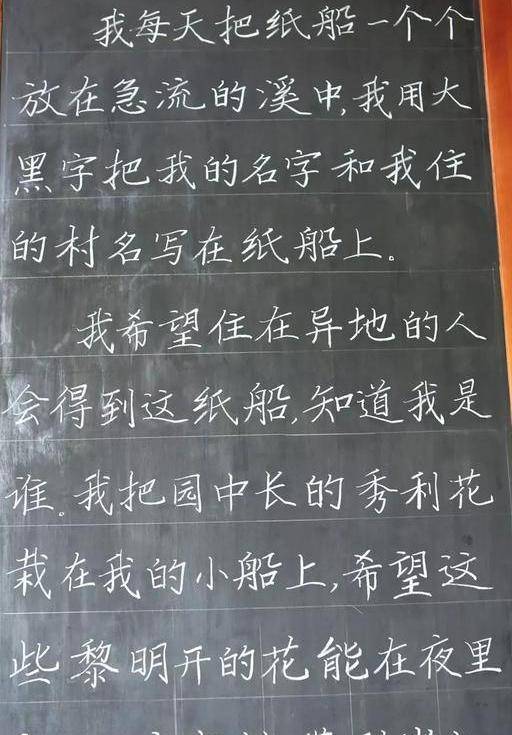 我每天把纸船一个个
放在急流的溪中,我用大
黑字把我的名字和我住
的村名写在纸船上。
我希望住在异地的人
会得到这纸船,知道我是
谁。我把园中长的秀利花
栽在我的小船上,希望这
些黎明开的花能在夜里